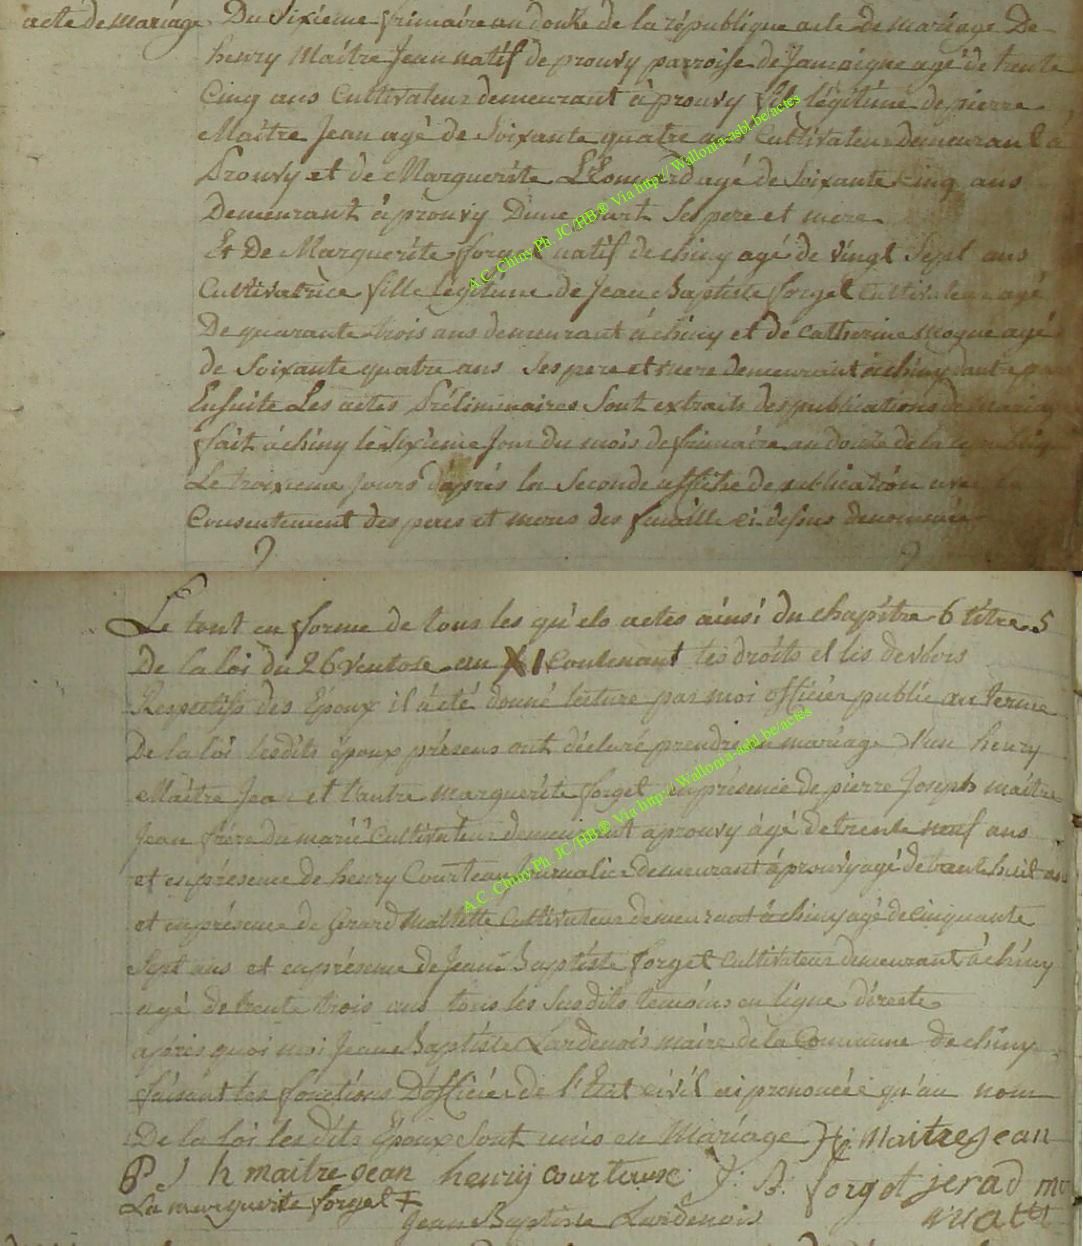 acte de mariage Du Sixieme frimaire an douze de la république acte de mariage De
henry Maitre Jean natif de prouvy parroisse de Jamoigne agé de trente
Cinq ans Cultivateur demeurant à prouvy fils légitime de pierre
Maitre Jean agé de Soixante quatre ans Cultivateur demeurant à
Prouvy et de Marguerite agé de Soixante Cinq ans
Demeurant à prouvy D'une part Ses pere et mere
Et De Marguerite forget natif de chiny agé de vingt Sept ans
Cultivatrice fille légitime de Jean Baptiste forget Cultivateur agé
De quarante trois ans demeurant à chiny et de Catherine moque agé
de Soixante quatre ans Ses pere et mere demeurant à chiny d'autre part
Ensuite Les actes Préliminaires Sont extraits des publications de mariage
fait à chiny le Sixieme Jour du mois de frimaire an douze de la republique
Le troixieme Jours d'après la Seconde affiche de publication avec le
Consentement des peres et meres des famille ci dessus denommée
Le tout en forme de tous les qu'els actes ainsi du chapitre 6 titre 5
De la loi du 26 ventose an XI Contenant les droits et les devoirs
Respectifs des Epoux il a été donné lecture par moi officier public au terme
De la loi lesdits époux présens ont déclaré prendre en mariage l'un henry
Maitre Jean et l'autre marguerite forget en présence de pierre Joseph maitre
Jean frère du marié Cultivateur demeurant a prouvy âgé de trente neuf ans
et en présence de henry Courteau Journalier demeurant à prouvy agé de trente huit ans
et en présence de Gerard Mallette Cultivateur demeurant à chiny agé de Cinquante
Sept ans et en présence de Jean Baptiste forget Cultivateur demeurant à chiny
agé de trente trois ans tous les Susdits temoins en ligne directe
après quoi moi Jean Baptiste Lardenois maire de la Commune de chiny
faisant les fonctions D'officier de l'Etat civil ai prononcée qu'au nom
De la loi les dits Epoux Sont unis en Mariage H Maitre Jean
P J h maitre jean henry courteuse J. B. forget jerad m
La marguerite forget +
Jean Baptiste Lardenois
A.C. Chiny Ph. JC/HB® Via http://Wallonia-asbl.be/actes
A.C. Chiny Ph. JC/HB® Via http://Wallonia-asbl.be/actes